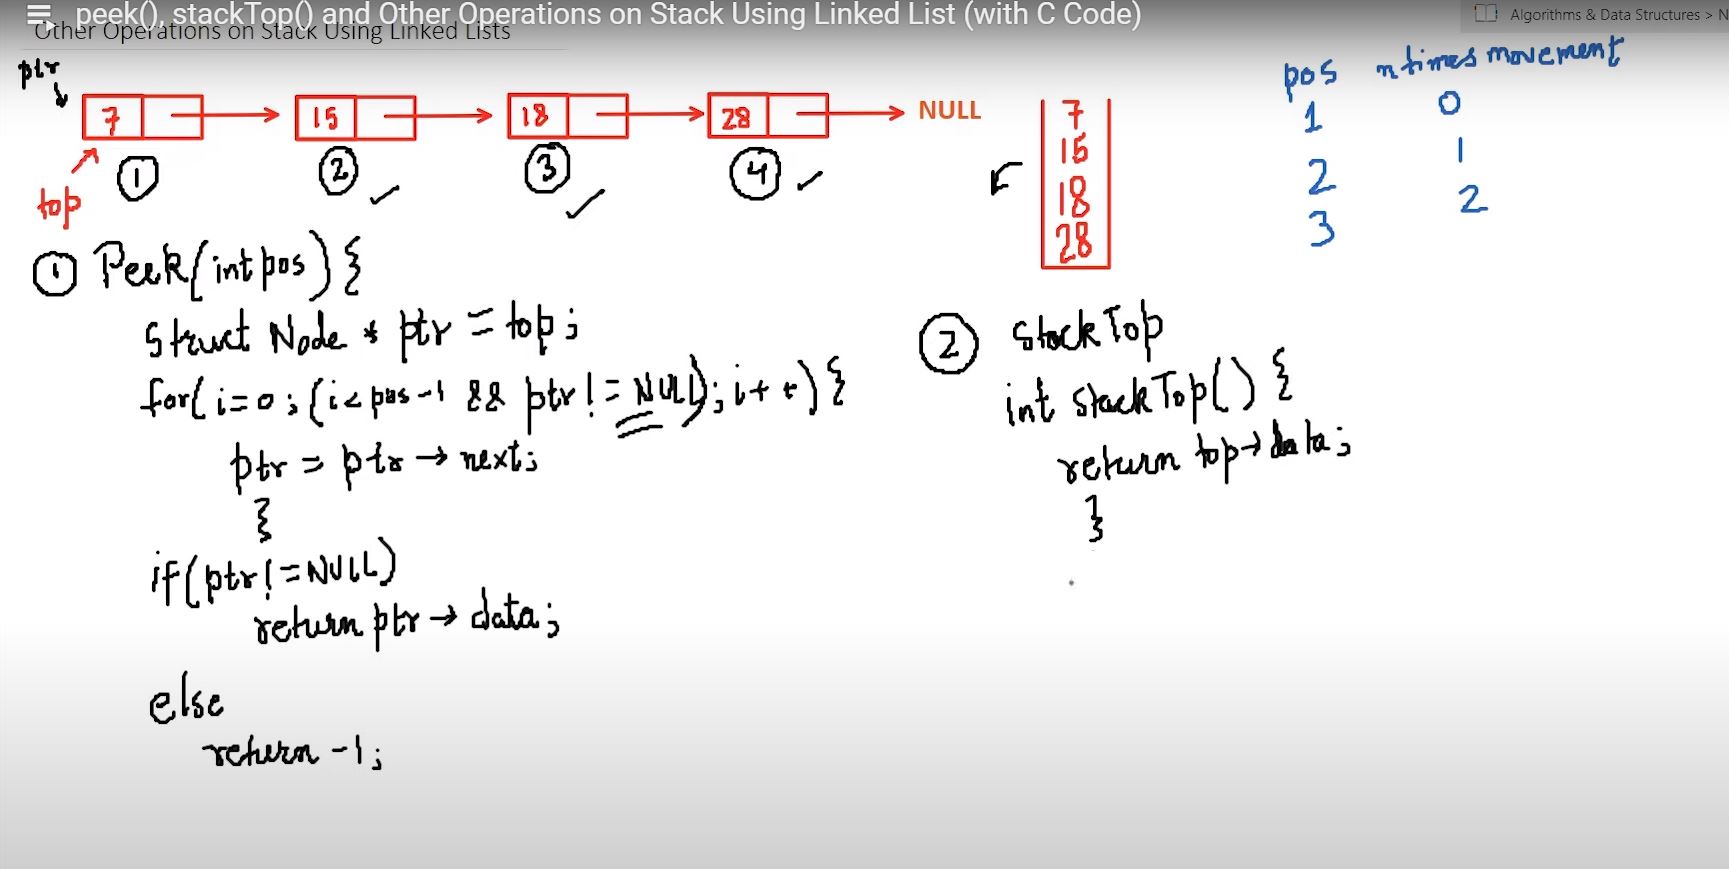 peek(), stackTop() and Other Operations on Stack Using Linked List (with C Code)
Algorithms & Data Structures > N
Other Operations on Stack Using Linked Lists
ptr
7 15 18 28 NULL
top
1 2 3 4
7
15
18
28
pos n times movement
1 0
2 1
3 2
1 Peek(int pos) {
struct Node * ptr = top;
for(i=0; (i<pos-1 && ptr != NULL); i++) {
ptr = ptr → next;
}
if(ptr != NULL)
return ptr → data;
else
return -1;
2 stackTop
int stackTop() {
return top → data;
}